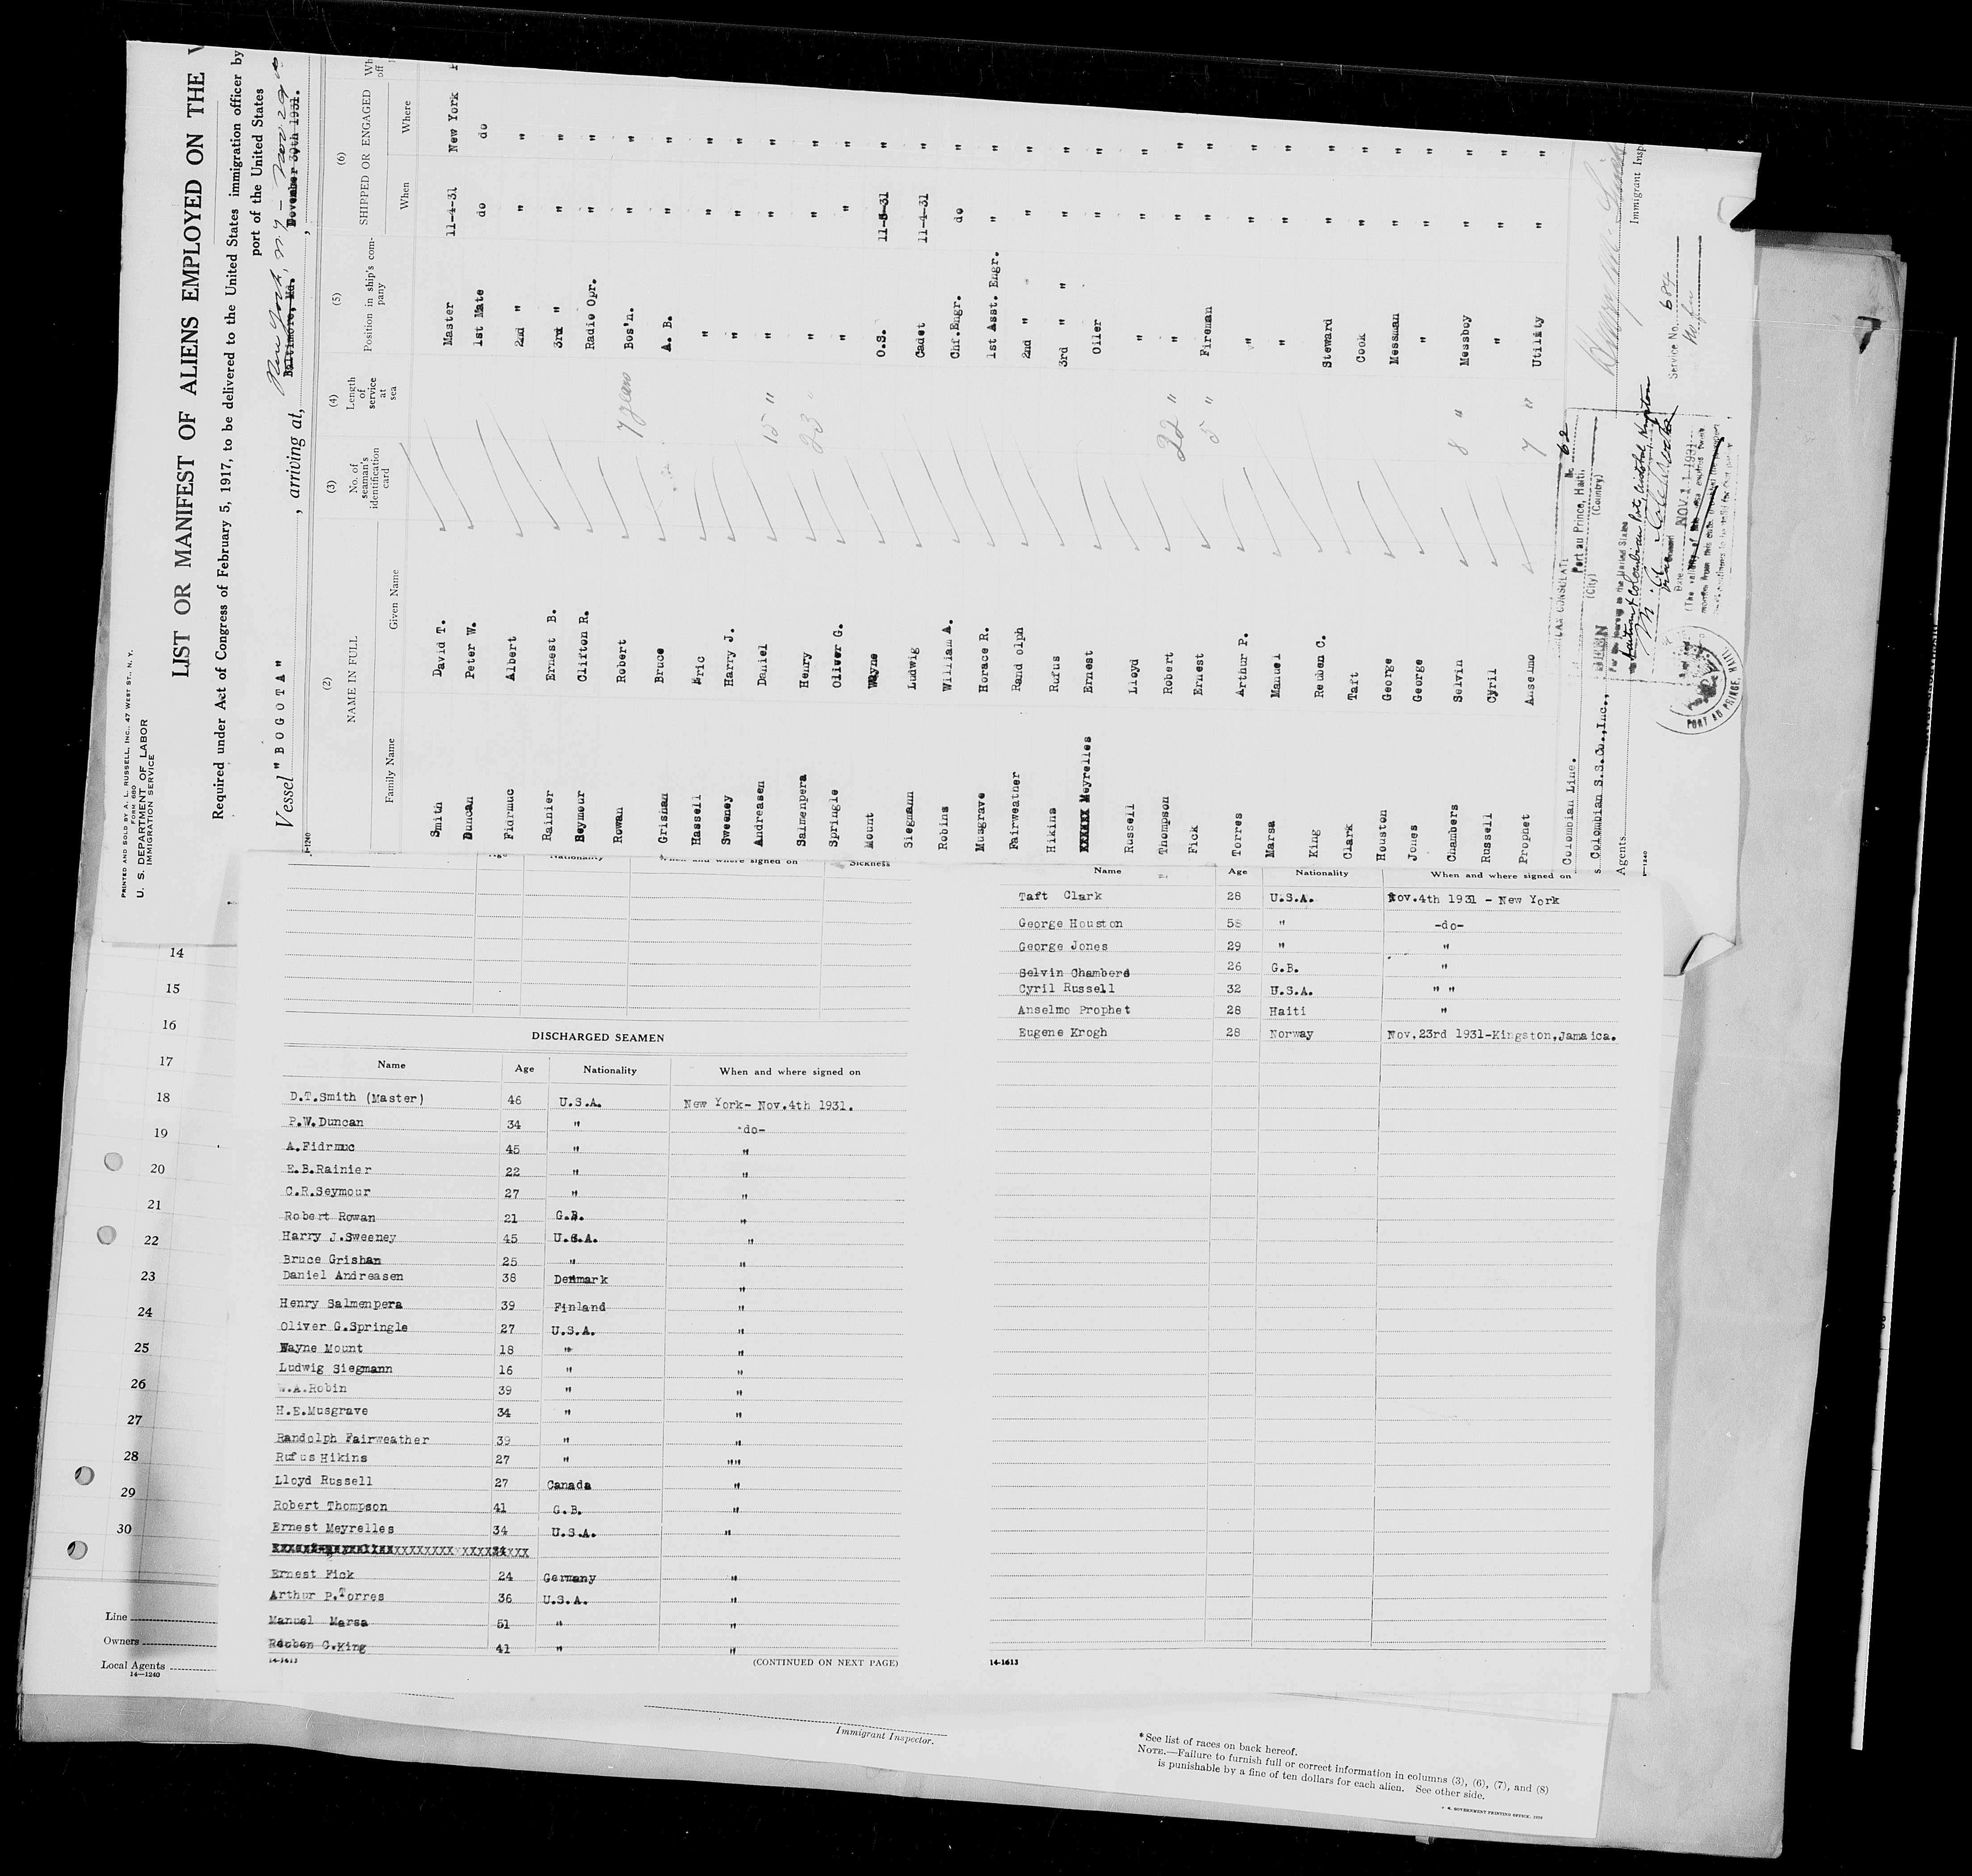 PRINTED AND SOLD BY A. L. RUSSELL, INC., 47 WEST ST., N. Y.
FORM 680
U. S. DEPARTMENT OF LABOR
IMMIGRATION SERVICE
LIST OR MANIFEST OF ALIENS EMPLOYED ON THE
Required under Act of Congress of February 5, 1917, to be delivered to the United States immigration officer by
port of the United States
Vessel "BOGOTA", arriving at, New York, NY - Nov 29
Baltimore, Md. November 30th 1931.
(2) (3) (4) (5) (6)
NAME IN FULL No. of seaman's identification card Length of service at sea Position in ship's company SHIPPED OR ENGAGED
Family Name Given Name When Where
Smith David T. Master 11-4-31 New York
Duncan Peter W. 1st Mate do do
Fidrmuc Albert 2nd " " "
Rainier Ernest B. 3rd " " "
Seymour Clifton R. Radio Opr. " "
Rowan Robert 7 years Bos'n. " "
Grishan Bruce A. B. " "
Hassell Eric " " "
Sweeney Harry J. " " "
Andreasen Daniel 15 " " " "
Salmenpera Henry 23 " " " "
Springle Oliver G. " " "
Mount Wayne O.S. 11-5-31 "
Siegmann Ludwig Cadet 11-4-31 "
Robins William A. Chf.Engr. do "
Musgrave Horace R. 1st Asst. Engr. " "
Fairweather Randolph 2nd " " " "
Hikins Rufus 3rd " " " "
XXXXXX Meyrelles Ernest Oiler " "
Russell Lloyd " " "
Thompson Robert 22 " " " "
Fick Ernest 5 " Fireman " "
Torres Arthur P. " " "
Marsa Manuel " " "
King Reuben C. Steward " "
Clark Taft Cook " "
Houston George Messman " "
Jones George " " "
Chambers Selvin 8 " Messboy " "
Russell Cyril " " "
Prophet Anselmo 7 " Utility " "
Colombian Line.
Colombian S.S.Co.,Inc.,
Agents
Immigrant Insp
Service No. 684
No. 62
Port au Prince, Haiti
(City) (Country)
SEEN
For the journey to the United States
NOV 11 1931
PORT AU PRINCE, HAITI
Age Nationality When and where signed on Sickness
DISCHARGED SEAMEN
Name Age Nationality When and where signed on
D.T.Smith (Master) 46 U.S.A. New York- Nov.4th 1931.
P.W.Duncan 34 " -do-
A.Fidrmuc 45 " "
E.B.Rainier 22 " "
C.R.Seymour 27 " "
Robert Rowan 21 G.B. "
Harry J.Sweeney 45 U.S.A. "
Bruce Grishan 25 " "
Daniel Andreasen 38 Denmark "
Henry Salmenpera 39 Finland "
Oliver G.Springle 27 U.S.A. "
Wayne Mount 18 " "
Ludwig Siegmann 16 " "
W.A.Robin 39 " "
H.E.Musgrave 34 " "
Randolph Fairweather 39 " "
Rufus Hikins 27 " ""
Lloyd Russell 27 Canada "
Robert Thompson 41 G.B. "
Ernest Meyrelles 34 U.S.A. "
Ernest Fick 24 Germany "
Arthur P.Torres 36 U.S.A. "
Manuel Marsa 51 " "
Reuben C.King 41 " "
14-1613 (CONTINUED ON NEXT PAGE)
Name Age Nationality When and where signed on
Taft Clark 28 U.S.A. Nov.4th 1931 - New York
George Houston 58 " -do-
George Jones 29 " "
Selvin Chambers 26 G.B. "
Cyril Russell 32 U.S.A. " "
Anselmo Prophet 28 Haiti "
Eugene Krogh 28 Norway Nov.23rd 1931-Kingston,Jamaica.
14-1613
14
15
16
17
18
19
20
21
22
23
24
25
26
27
28
29
30
Line
Owners
Local Agents
14—1240
Immigrant Inspector.
*See list of races on back hereof.
NOTE.—Failure to furnish full or correct information in columns (3), (6), (7), and (8)
is punishable by a fine of ten dollars for each alien. See other side.
U. S. GOVERNMENT PRINTING OFFICE: 1930
7